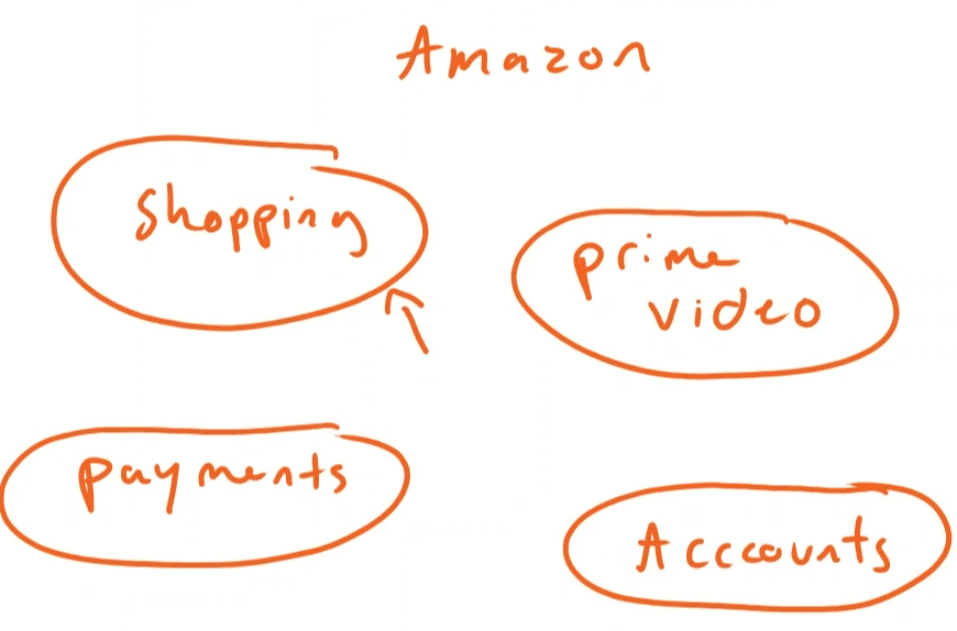 Amazon
Shopping
prime
video
payments
Acccounts